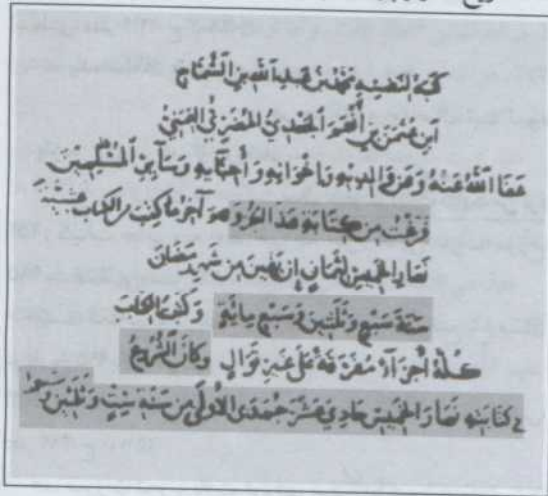 كتبه لنفسه محمد بن عبد الله بن الشماخ
ابن عثمن بن أفخر الجعدي المضري الغيبي
عفا الله عنه وعن والديه واخوانه وأحبابه وسائر المسلمين
فرغت من كتابة هذا الجزو وهو آخر ما كتبت من الكتاب عشية
نهار الخميس لثمان إن بقين من شهر رمضان
سنة سبع وثلثين وسبع مائة وكتبت الكتاب
كله أجزاء مفرقة على غير توال وكان الشروع
في كتابته نهار الخميس حادي عشر جمدى الأولى من سنة ست وثلثين وسبع